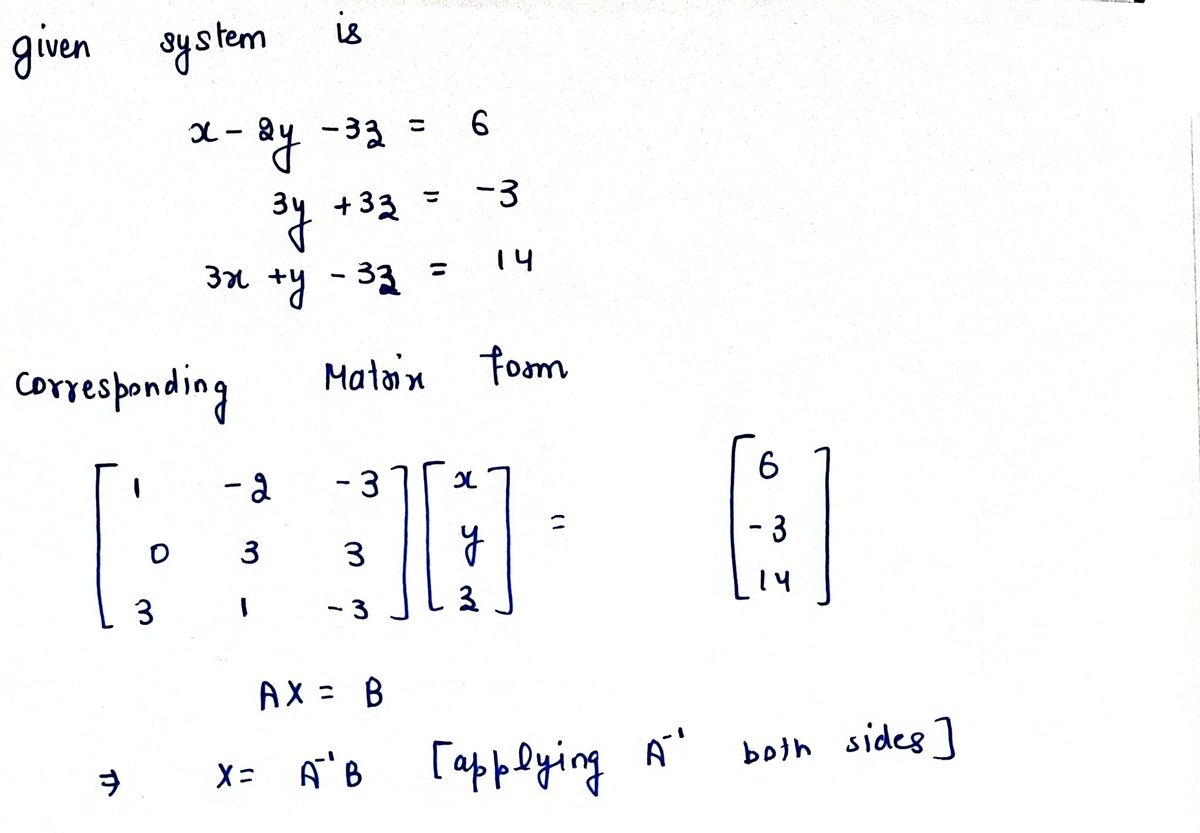 given system is
x - 2y - 3z = 6
3y + 3z = -3
3x + y - 3z = 14
Corresponding Matrix form
[ 1 -2 -3 ] [ x ] = [ 6 ]
[ 0 3 3 ] [ y ] [ -3 ]
[ 3 1 -3 ] [ z ] [ 14 ]
AX = B
⇒ X = A⁻¹B [applying A⁻¹ both sides]